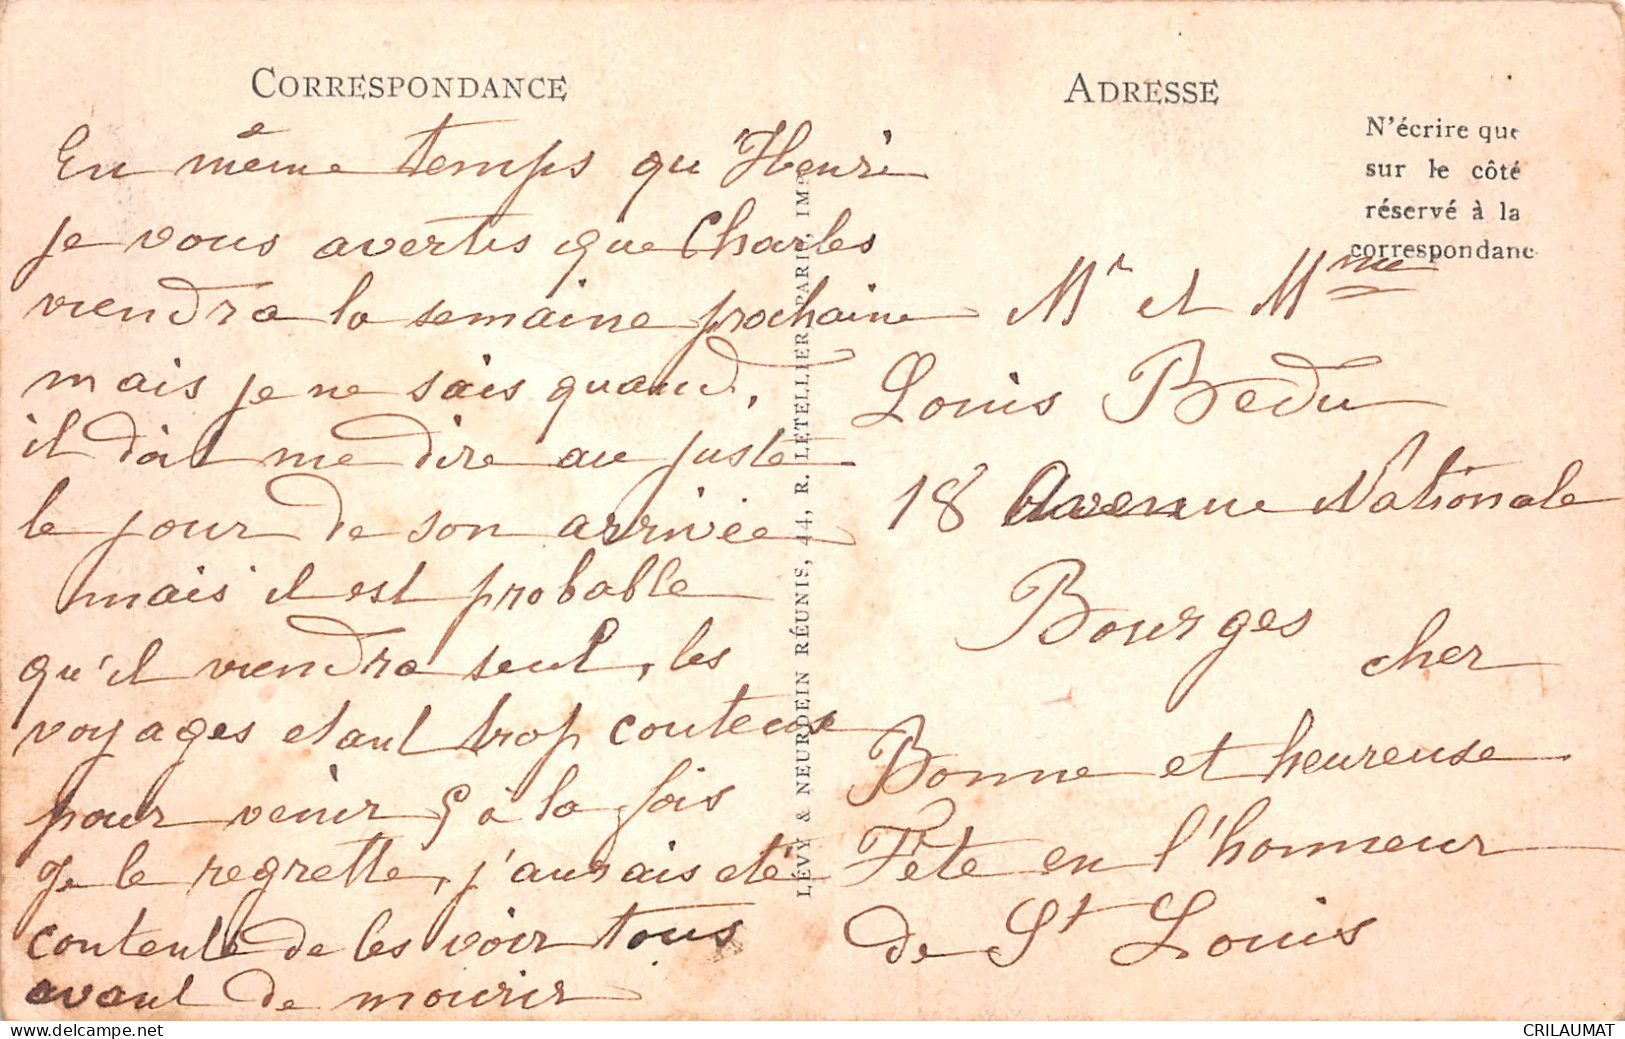 CORRESPONDANCE
En même temps qu'Henri
je vous avertis que Charles
viendra la semaine prochaine
mais je ne sais quand,
il doit me dire au juste
le jour de son arrivée
mais il est probable
qu'il viendra seul, les
voyages etant trop couteux
pour venir 5 à la fois
Je le regrette, j'aurais eté
contente de les voir tous
avant de mourir
LÉVY & NEURDEIN RÉUNIS, 44, R. LETELLIER, PARIS, IMP.
ADRESSE
N'écrire que
sur le côté
réservé à la
correspondanc
Mr et Mme
Louis Bedu
18 Avenue Nationale
Bourges
cher
Bonne et heureuse
Fête en l'honneur
de St Louis
CRILAUMAT